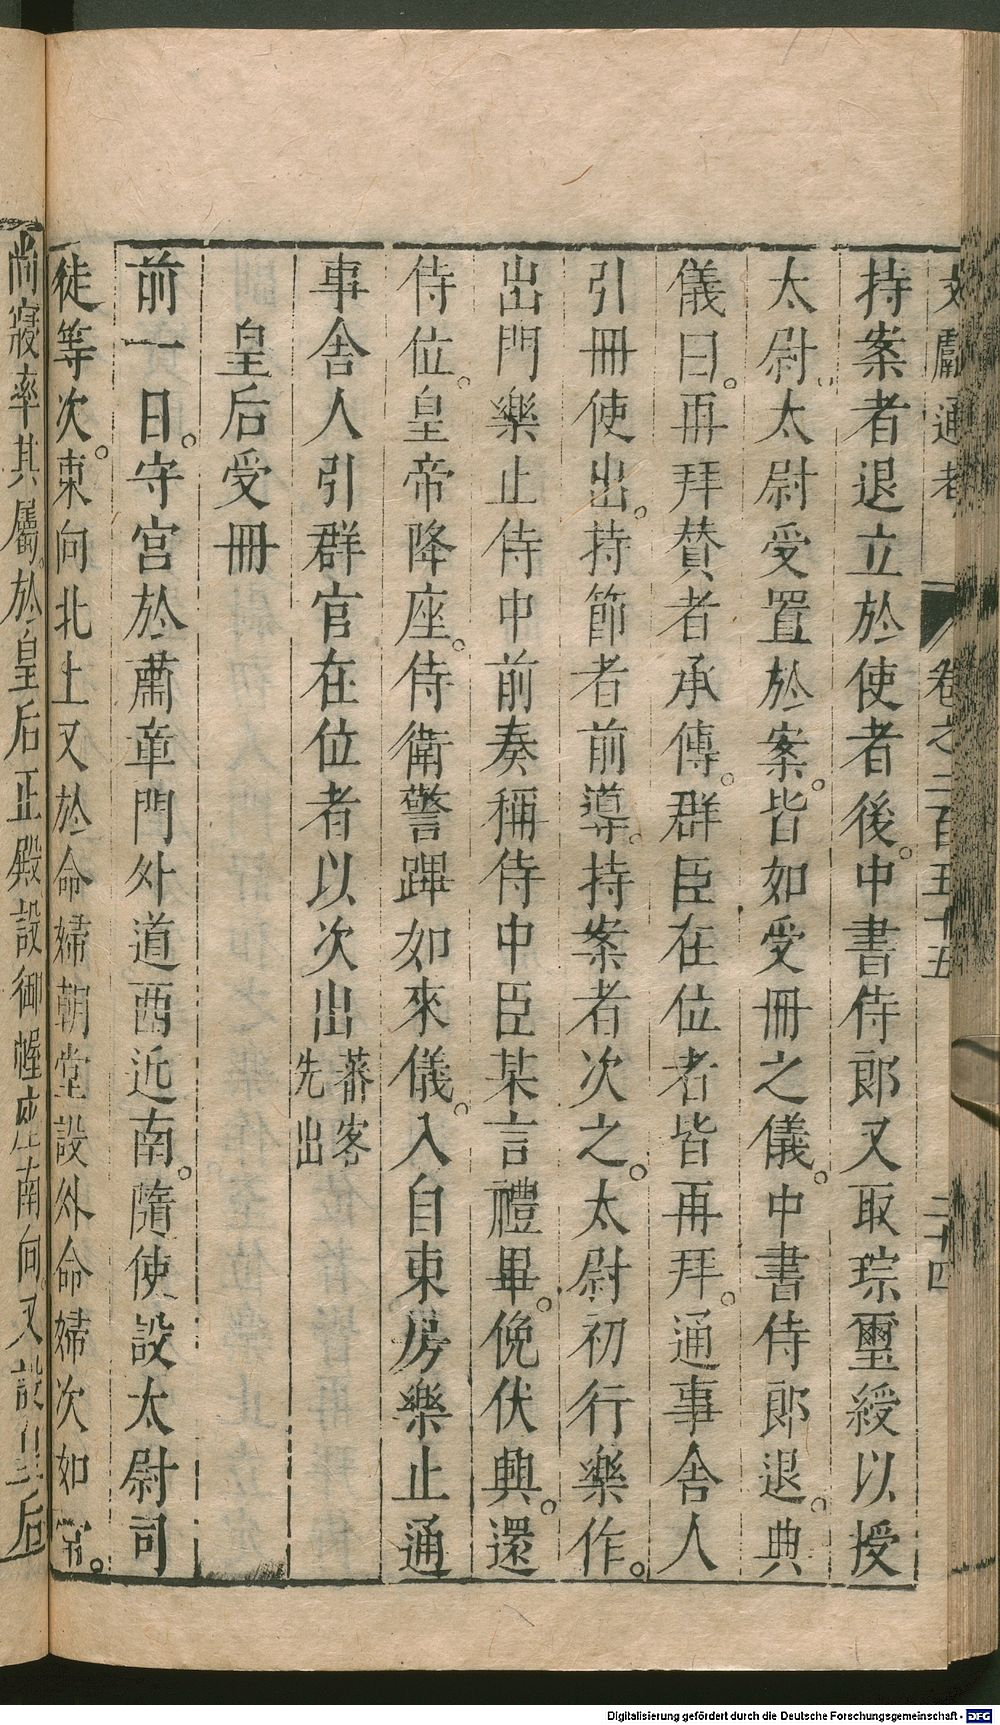 文獻通考 卷之二百五十五 二十四
持案者退立於使者後。中書侍郎又取琮璽綬以授
太尉。太尉受置於案。皆如受冊之儀。中書侍郎退。典
儀曰。再拜贊者承傳。群臣在位者皆再拜。通事舍人
引冊使出。持節者前導。持案者次之。太尉初行樂作。
出門樂止侍中前奏稱侍中臣某言禮畢。俛伏興。還
侍位。皇帝降座。侍衛警蹕如來儀。入自東房樂止通
事舍人引群官在位者以次出蕃客先出
皇后受冊
前一日。守宮於肅章門外道西近南。隨使設太尉司
徒等次。東向北上又於命婦朝堂設外命婦次如常。
尚寢率其屬。於皇后正殿設御幄座南向。又設皇后
Digitalisierung gefördert durch die Deutsche Forschungsgemeinschaft - DFG